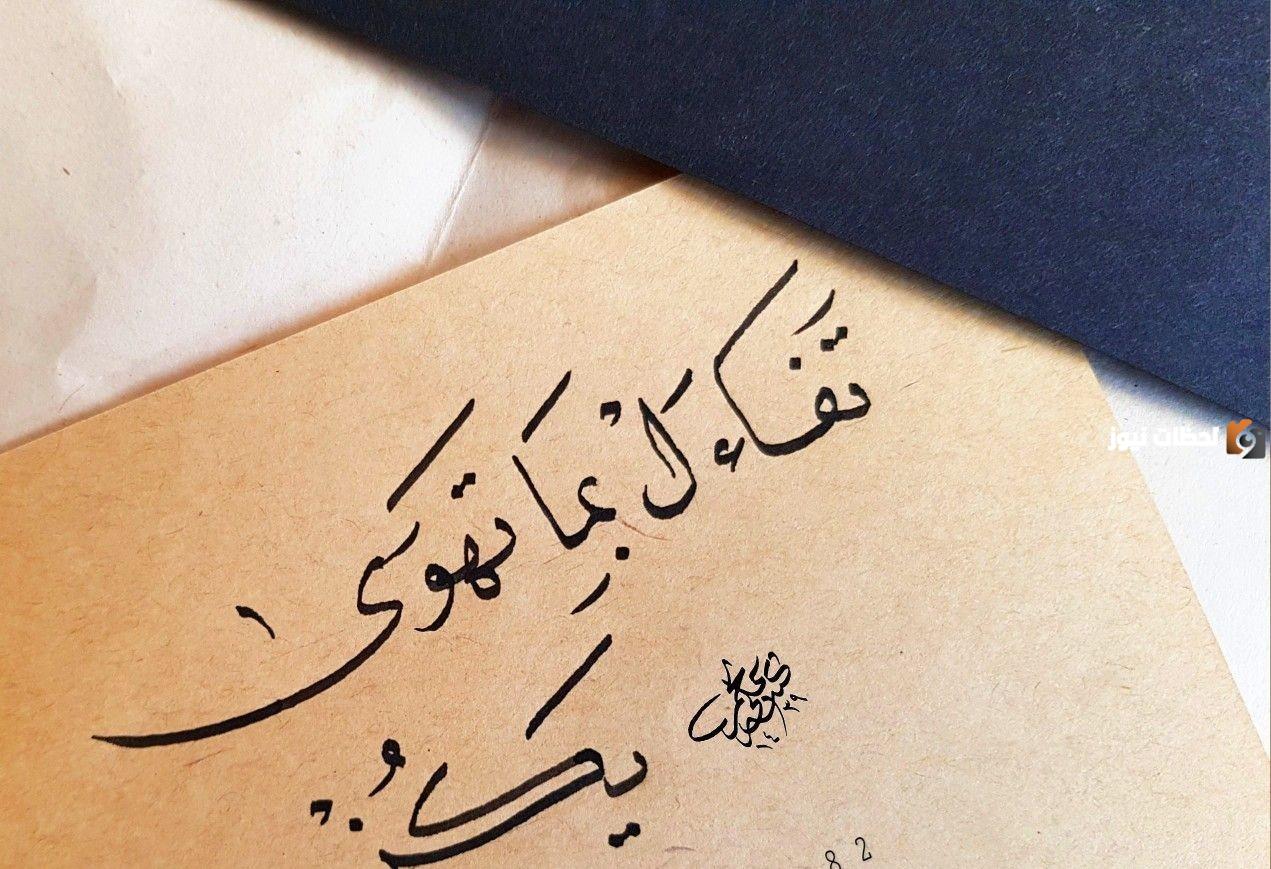 تفاءَلْ بِمَا تَهوَى
يكُن
لحظات نيوز
82